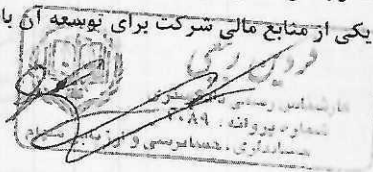 یکی از منابع مالی شرکت برای توسعه آن با
کارشناس رسمی دادگستری
شماره پروانه
حسابداری . حسابرسی و ارزیابی سهام